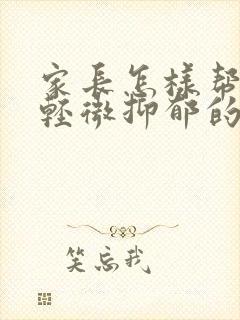 家長怎樣幫
輕微抑郁的
笑忘我